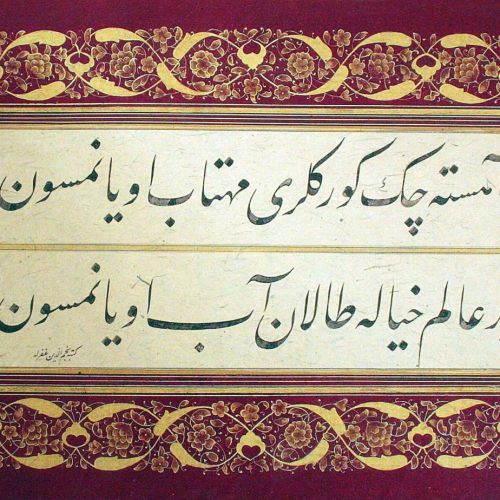 آهسته چك كوركلرى مهتاب اويانمسون
ر عالم خياله طالان آب اويانمسون
كتبه نجم الدين غفرله